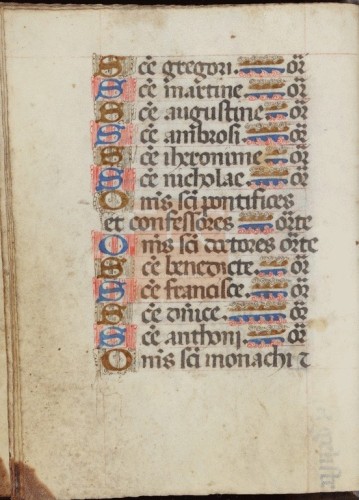 Sce gregori. or
Sce martine or
Sce augustine or
Sce ambrosi or
Sce iheronime or
Sce nicholae or
Omis sci pontifices
et confessores orte
Omis sci doctores orte
Sce benedicte or
Sce francisce or
Sce dnice or
Sce anthoni or
Omis sci monachi ⁊